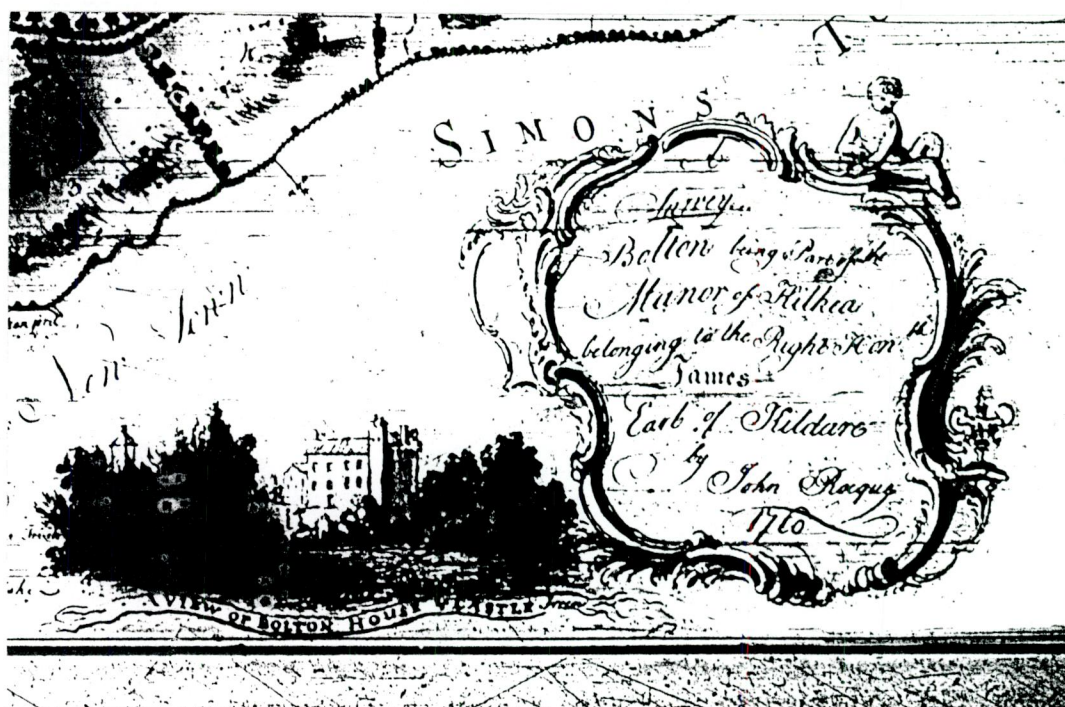 SIMONS
Survey
Bolton being Part of the
Manor of Kilkea
belonging to the Right Honble
James
Earl of Kildare
by
John Rocque
1760
A VIEW OF BOLTON HOUSE & CASTLE from